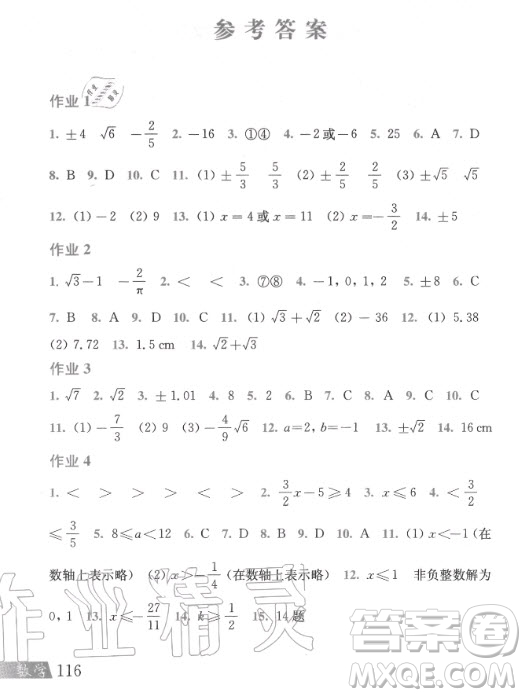 参考答案
作业 1
1. ±4 √6 -2/5 2. -16 3. ①④ 4. -2或-6 5. 25 6. A 7. D
8. B 9. D 10. C 11. (1) ±5/3 5/3 (2) ±√5/2 √5/2 (3) ±√5 √5
12. (1) -2 (2) 9 13. (1) x=4 或 x=11 (2) x=-3/2 14. ±5
作业 2
1. √3-1 -2/π 2. < < 3. ⑦⑧ 4. -1,0,1,2 5. ±8 6. C
7. B 8. A 9. D 10. C 11. (1) √3+√2 (2) -36 12. (1) 5.38
(2) 7.72 13. 1.5 cm 14. √2+√3
作业 3
1. √7 2. √2 3. ±1.01 4. 8 5. 2 6. B 7. C 8. A 9. C 10. C
11. (1) -7/3 (2) 9 (3) -4/9√6 12. a=2, b=-1 13. ±√2 14. 16 cm
作业 4
1. < > > > < > 2. 3/2x-5≥4 3. x≤6 4. <3/2
≤3/5 5. 8≤a<12 6. C 7. D 8. B 9. D 10. A 11. (1) x<-1 (在
数轴上表示略) (2) x>-1/4 (在数轴上表示略) 12. x≤1 非负整数解为
0,1 13. x≤-27/11 14. k≥1/2 15. 14题
作业精灵
答案圈
MXQE.COM
数学 116